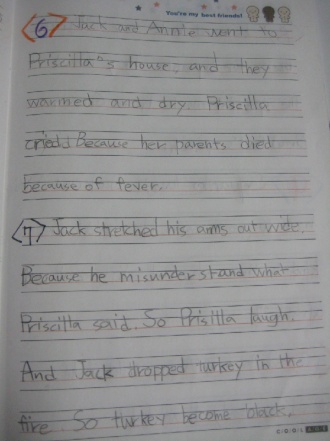 You're my best friends!
6 Jack and Annie went to
Priscilla's house. and they
warmed and dry. Priscilla
cried. Because her parents died
because of fever.
7 Jack stretched his arms out wide.
Because he misunderstand what
Priscilla said. So Prisitlla laugh.
And Jack dropped turkey in the
fire. So turkey become black.